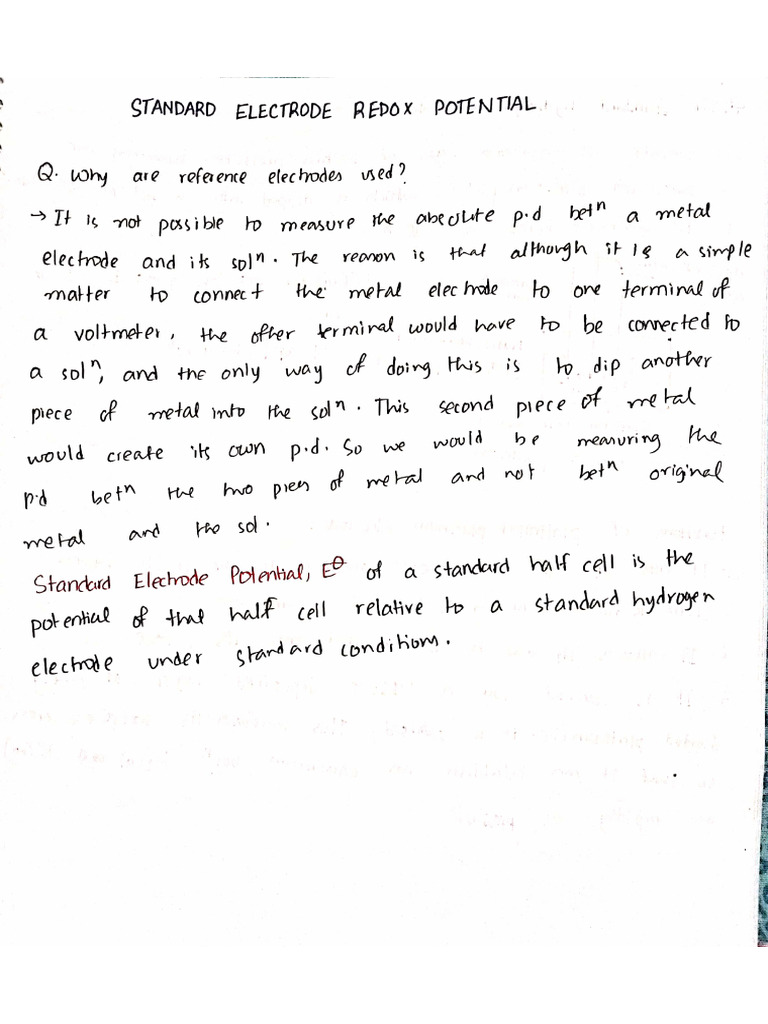 STANDARD ELECTRODE REDOX POTENTIAL
Q. Why are reference electrodes used?
→ It is not possible to measure the absolute p.d betⁿ a metal
electrode and its solⁿ. The reason is that although it is a simple
matter to connect the metal electrode to one terminal of
a voltmeter, the other terminal would have to be connected to
a solⁿ, and the only way of doing this is to dip another
piece of metal into the solⁿ. This second piece of metal
would create its own p.d. So we would be measuring the
p.d betⁿ the two pies of metal and not betⁿ original
metal and the sol.
Standard Electrode Potential, E⊖ of a standard half cell is the
potential of that half cell relative to a standard hydrogen
electrode under standard conditions.